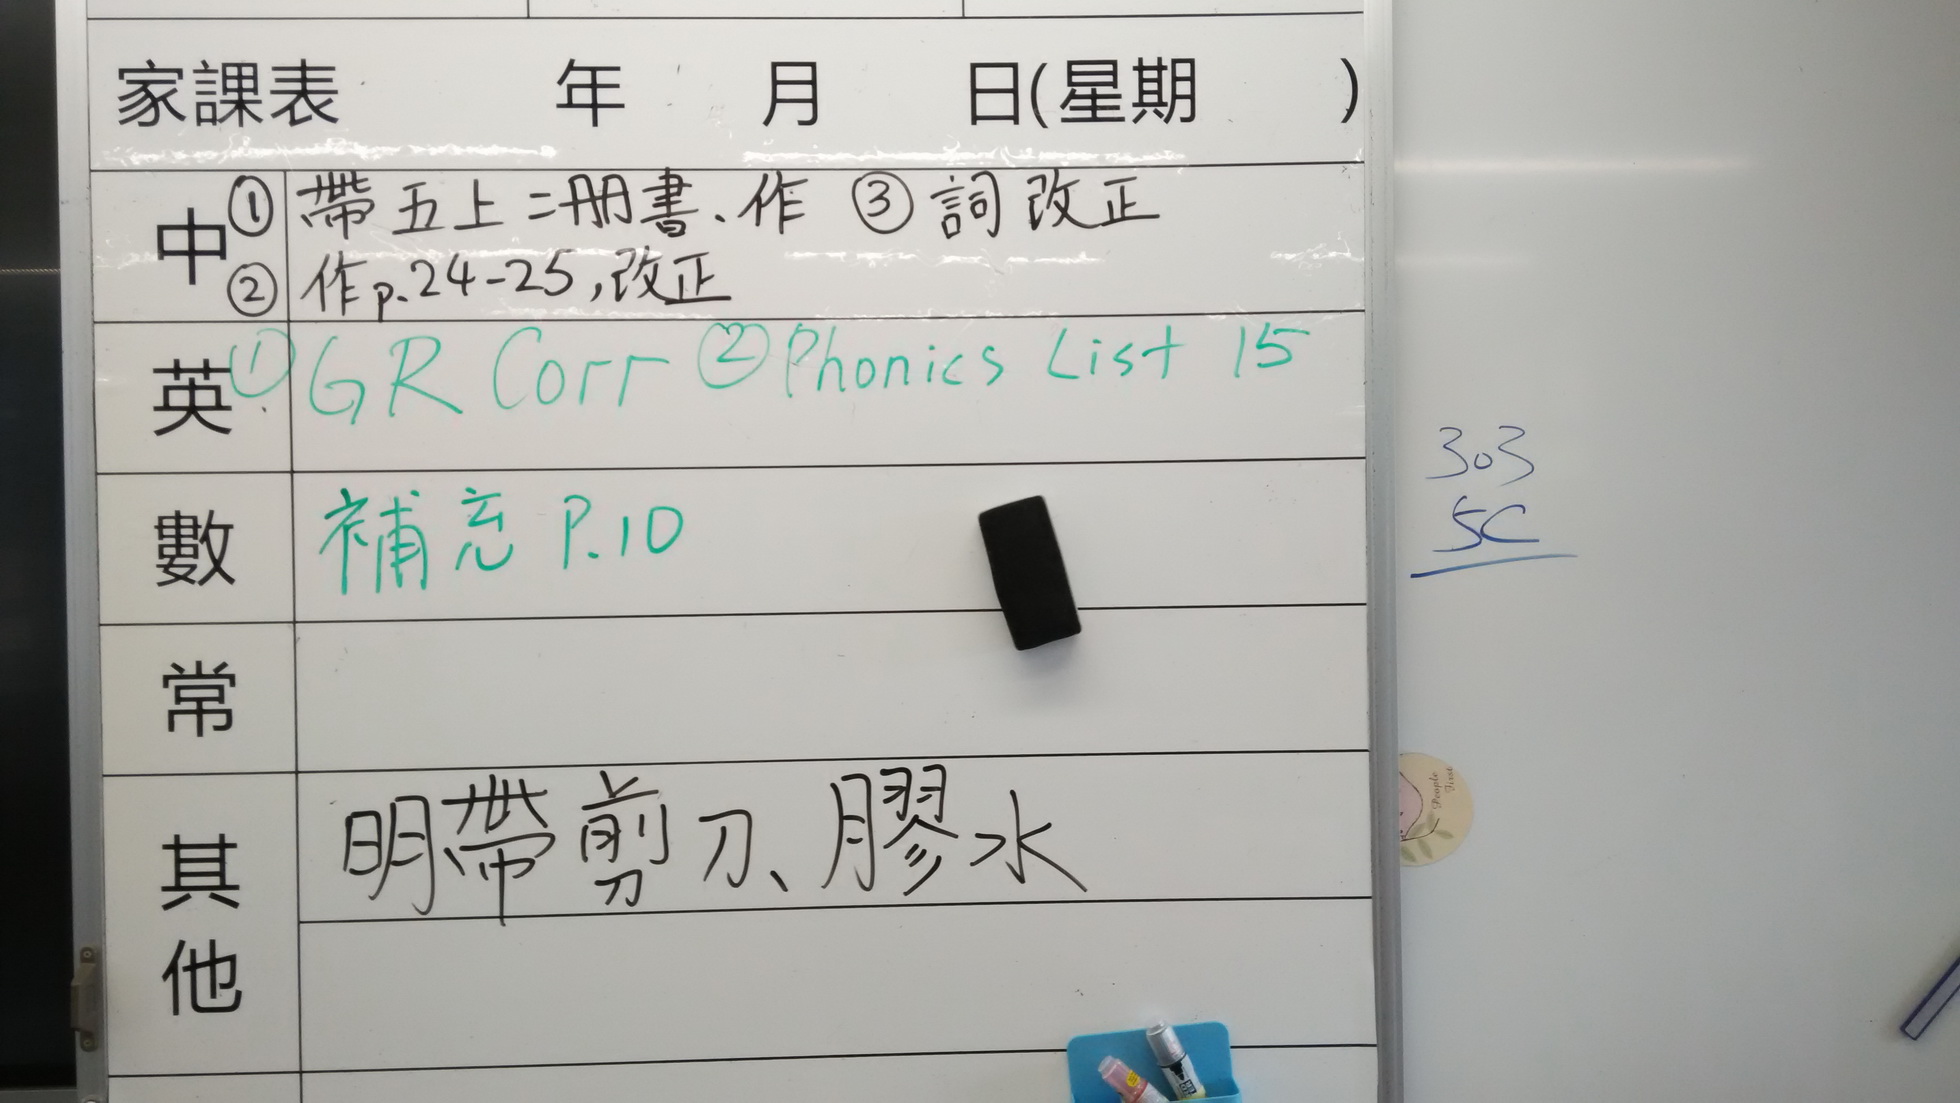 家課表 年 月 日(星期 )
中 ① 帶五上二冊書、作 ③ 詞改正
② 作p.24-25,改正
英 ① GR Corr ② Phonics List 15
數 補充 P.10
常
其他 明帶剪刀、膠水
303
5C
People First